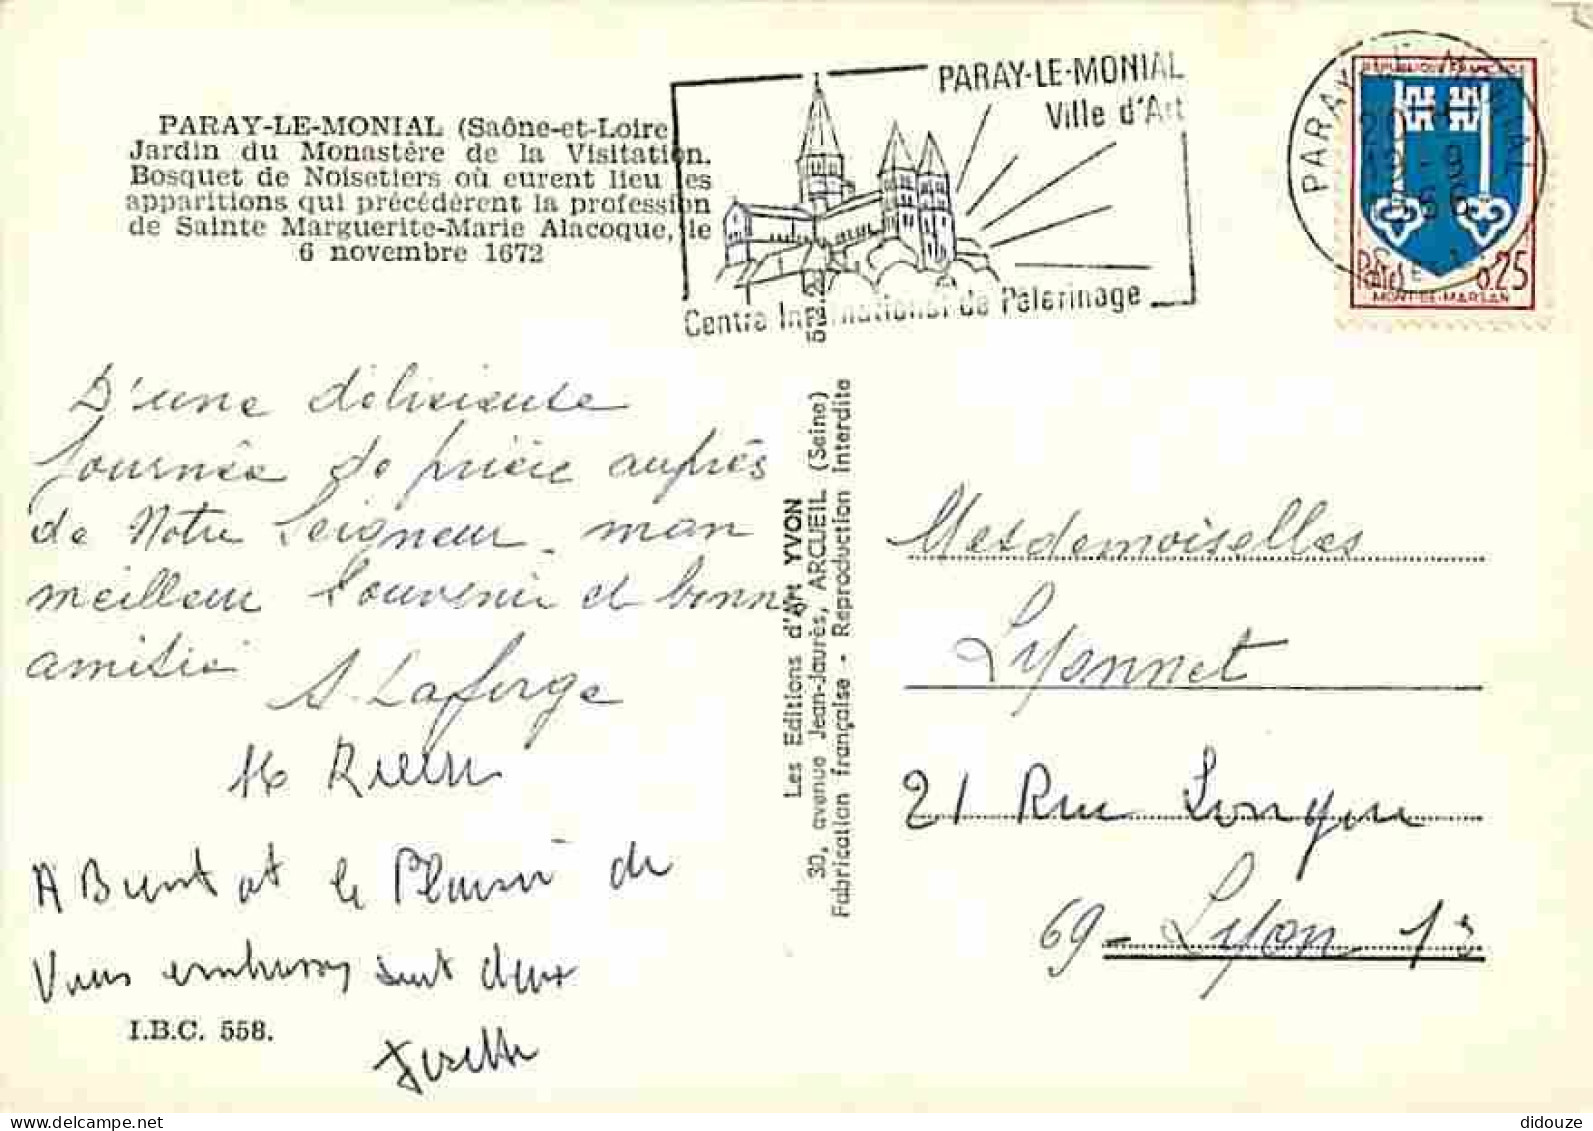 PARAY-LE-MONIAL (Saône-et-Loire)
Jardin du Monastère de la Visitation.
Bosquet de Noisetiers où eurent lieu les
apparitions qui précédèrent la profession
de Sainte Marguerite-Marie Alacoque, le
6 novembre 1672
PARAY-LE-MONIAL
Ville d'Art
Centre International de Pèlerinage
PARAY-LE-MONIAL
REPUBLIQUE FRANÇAISE
POSTES 0,25
MONT-DE-MARSAN
D'une délicieuse
journée de prière auprès
de Notre Seigneur. mon
meilleur souvenir et bonne
amitié
A. Laforge
A Bientot le Plaisir de
Vous embrasser
I.B.C. 558.
Les Editions d'Art YVON
30, avenue Jean-Jaurès, ARCUEIL (Seine)
Fabrication française - Reproduction Interdite
Mesdemoiselles
Lyonnet
21 Rue Longue
69 - Lyon 13
didouze